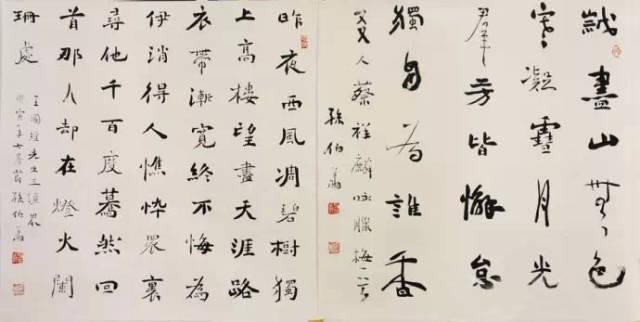 盡山無色
寒凝雪月光
群芳皆懈怠
獨自為誰香
友人蔡祥麟詠臘梅一首
孫伯翔
昨夜西風凋碧樹獨
上高樓望盡天涯路
衣帶漸寬終不悔為
伊消得人憔悴眾裏
尋他千百度驀然回
首那人却在燈火闌
珊處
王國維先生三境界
寅年 孫伯翔